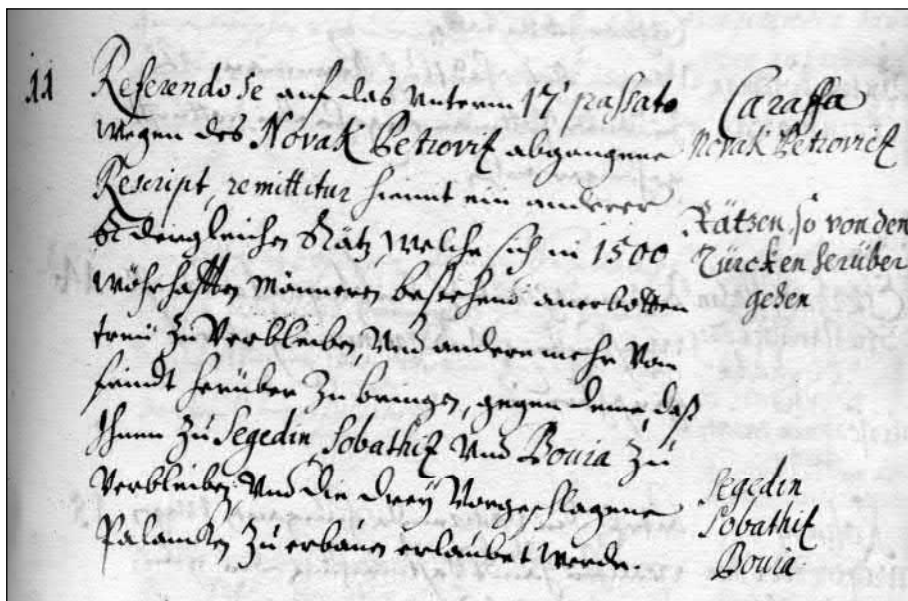 11 Referendo se auf das unterm 17 passato
wegen des Novak Petrovič abgangene
Rescript, remittitur hiemit ein anderer
dergleichen Rätz, welche sich in 1500
wöhrhafften Männeren bestehend anerbotten
treü zu verbleiben, und andere mehr vom
feindt herüber zu bringen, gegen deme, daß
Ihnen zu Segedin, Sobathiz und Bouia zu
verbleiben, und die drey vorgeschlagene
Palancken zu erbauen erlaubet werde.
Caraffa
Novak Petrovich
Rätzen, so von den
Türcken herüber
gehen
Segedin
Sobathiz
Bouia